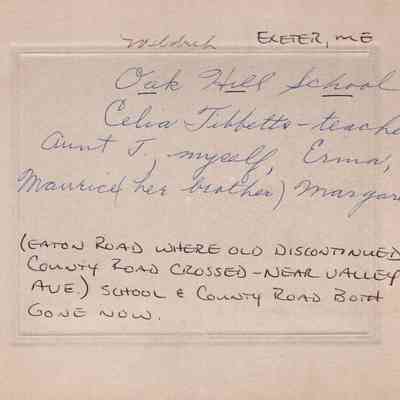 Weldrich EXETER, ME
Oak Hill School
Celia Tibbetts - teache
Aunt J., myself, Erma,
Maurice (her brother) Margar
(EATON ROAD WHERE OLD DISCONTINUED
COUNTY ROAD CROSSED - NEAR VALLEY
AVE.) SCHOOL & COUNTY ROAD BOTH
GONE NOW.